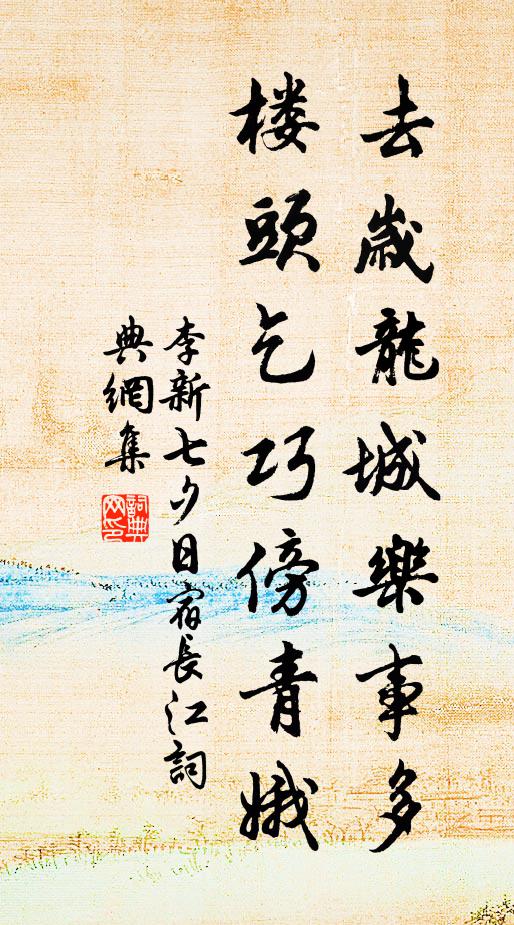 去歳龍城樂事多
楼頭乞巧傍青娥
李新七夕日宿長江詞
典網集
詞典
网印